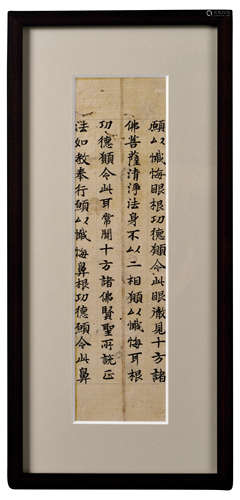 願以懺悔眼根功德願令此眼徹見十方諸
佛菩薩清淨法身不以二相願以懺悔耳根
功德願令此耳常聞十方諸佛賢聖所說正
法如教奉行願以懺悔鼻根功德願令此鼻